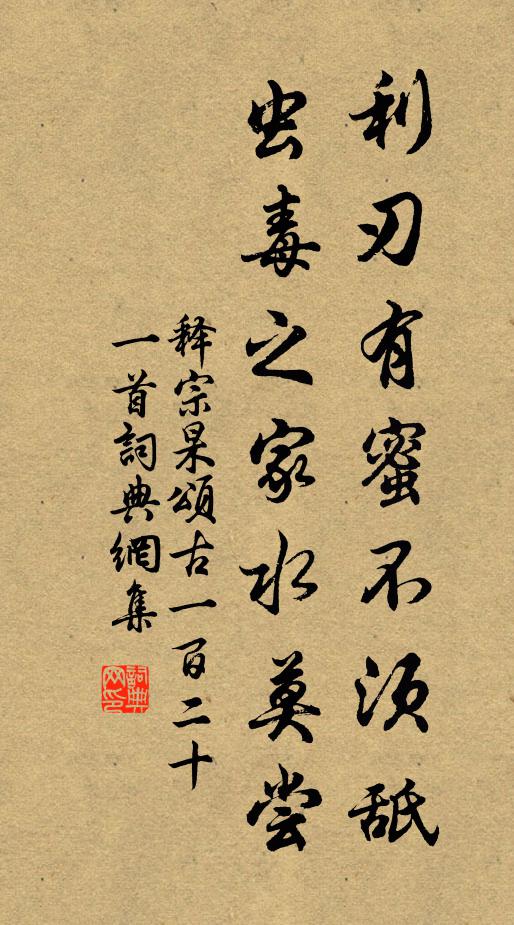 利刃有蜜不须舐
虫毒之家水莫尝
释宗杲頌古一百二十
一首詞典網集
詞典
网印